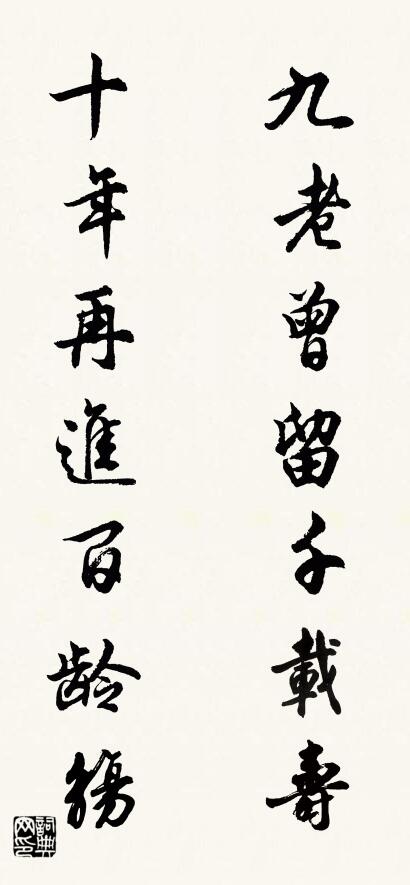 九老曾留千載壽
十年再進百齡觴
詞典網印